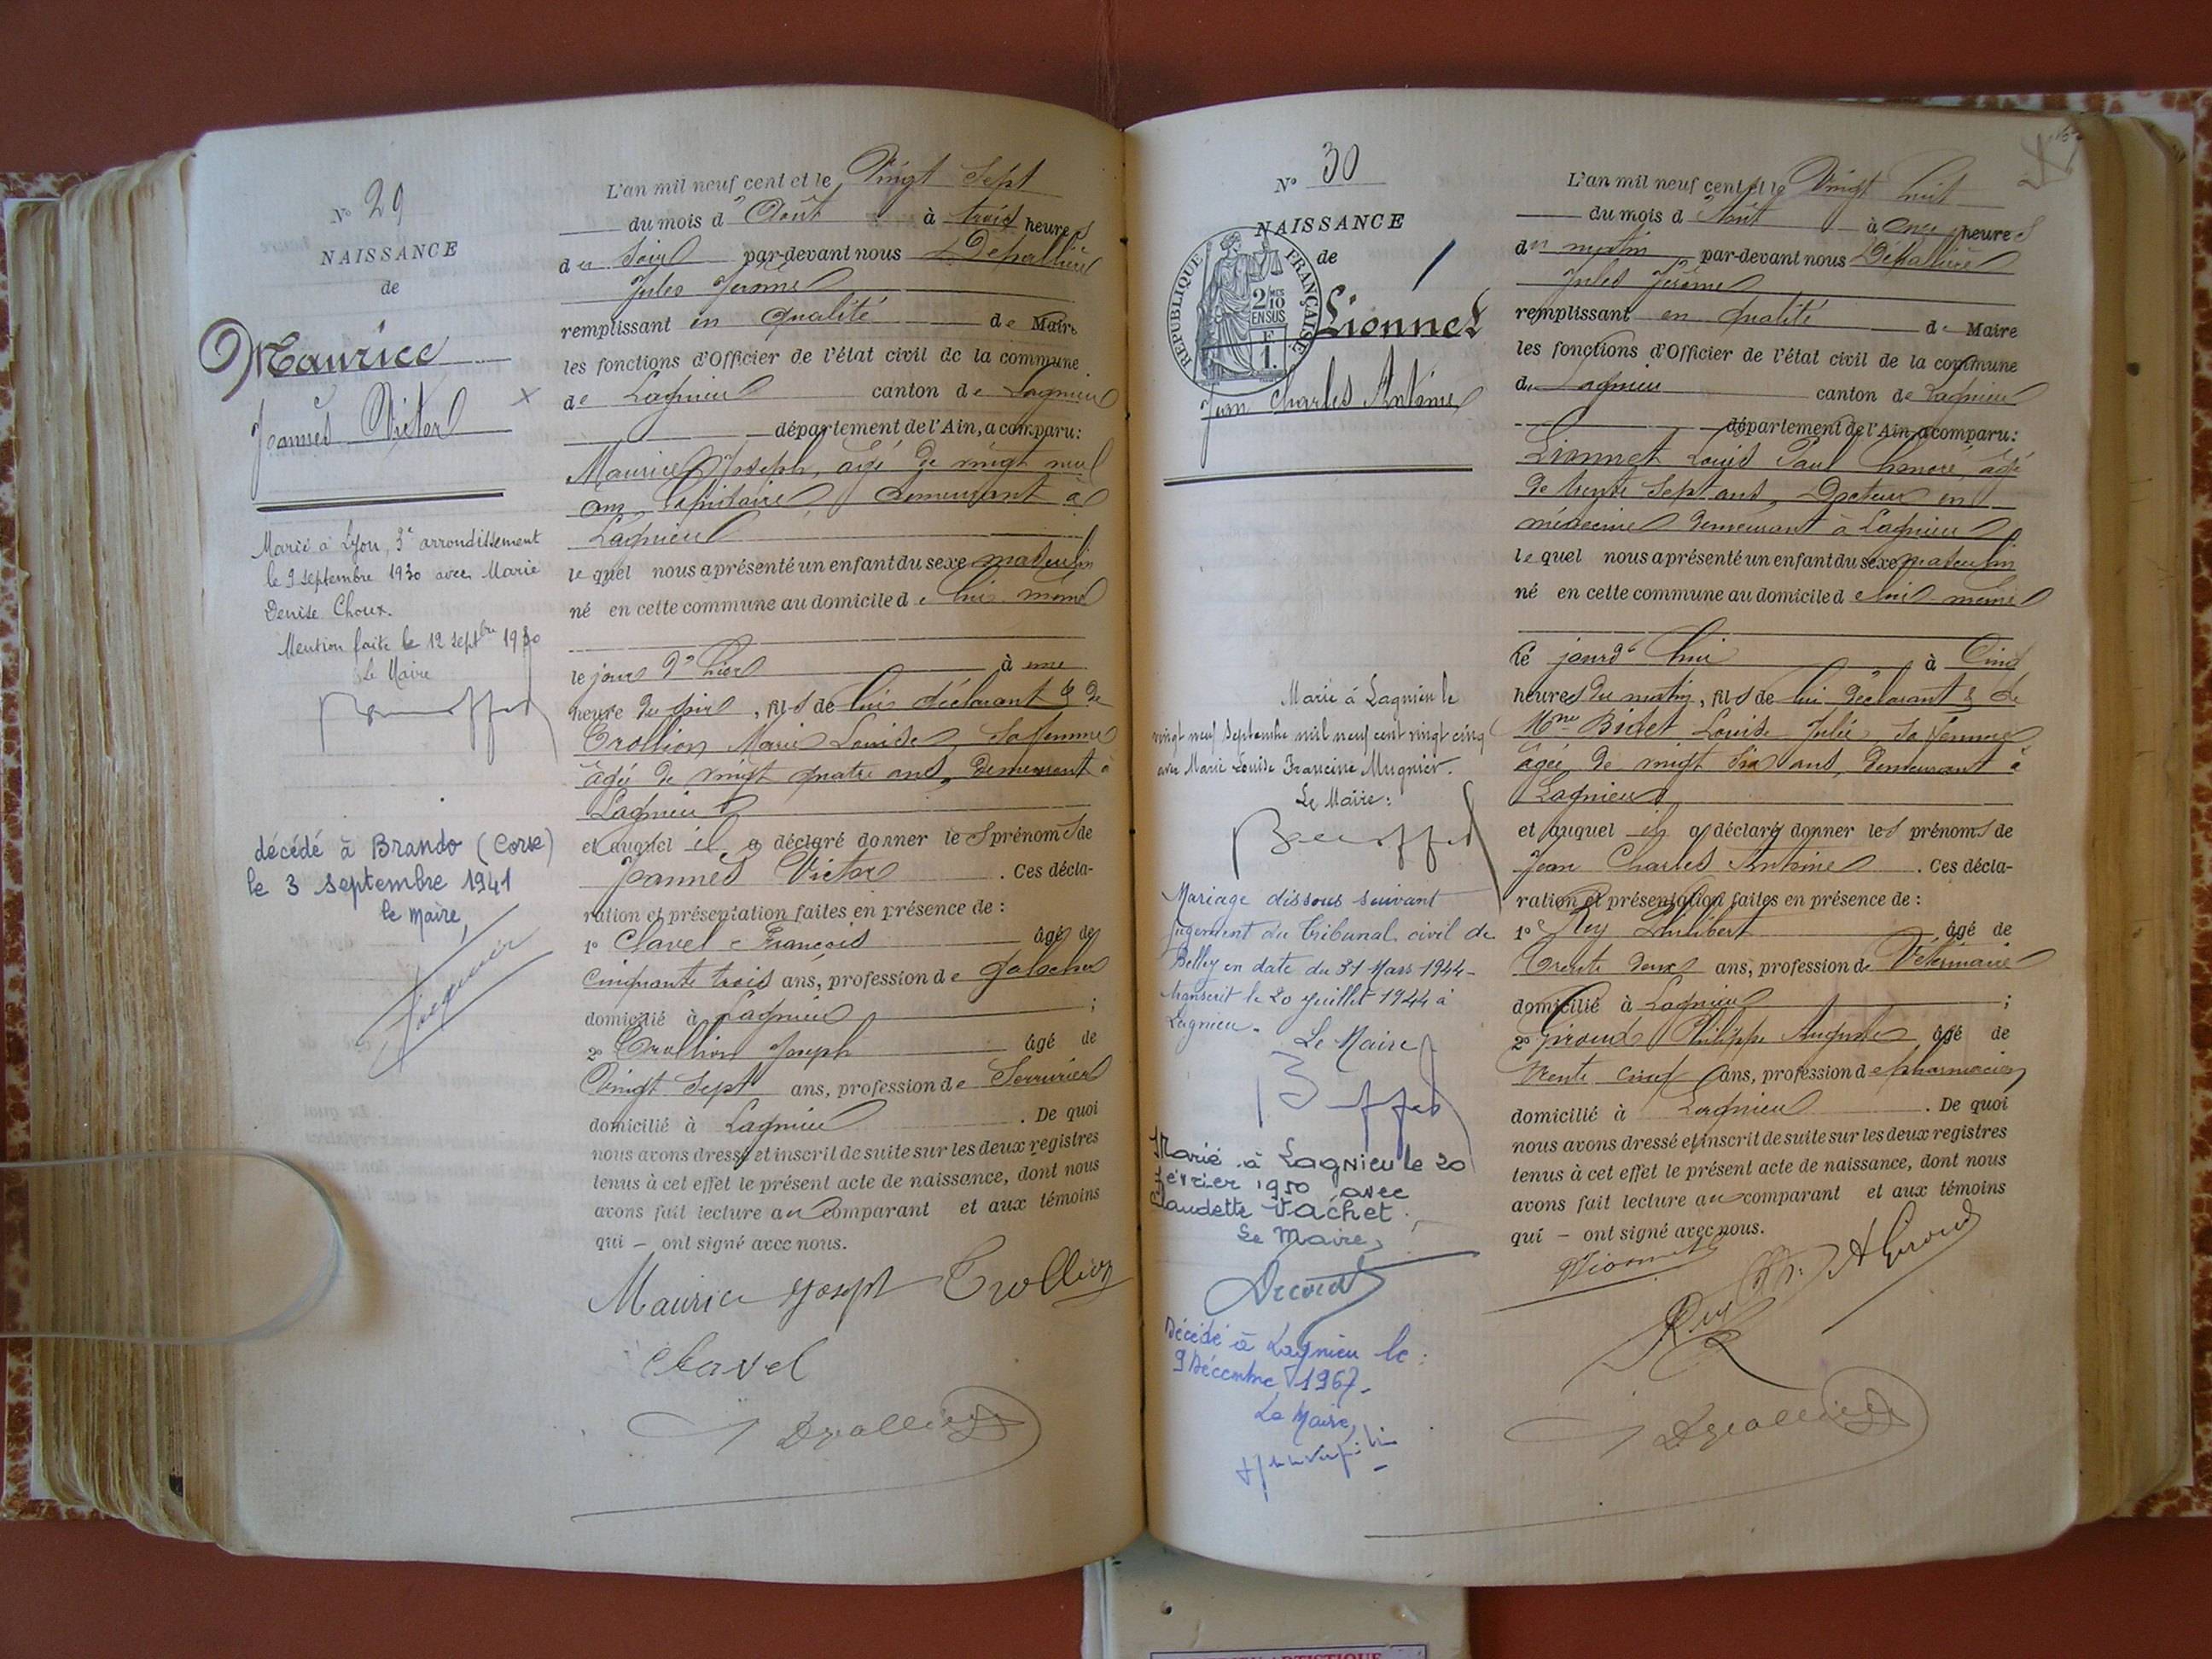 Nº 29
NAISSANCE
de
Maurice
Joannès Victor
Marié à Lyon, 3e arrondissement
le 9 septembre 1930 avec Marie
Denise Choux.
Mention faite le 12 septbre 1930
Le Maire
décédé à Brando (Corse)
le 3 septembre 1941
le Maire,
L'an mil neuf cent et le Vingt Sept
du mois d'Août à trois heures
du soir par-devant nous Dépallière
Jules Jérôme
remplissant en qualité de Maire
les fonctions d'Officier de l'état civil de la commune
de Lagnieu canton de Lagnieu
département de l'Ain, a comparu:
Maurice Joseph, âgé de vingt neuf
ans, demeurant à
Lagnieu
lequel nous a présenté un enfant du sexe masculin
né en cette commune au domicile de lui même
le jour d'hier à une
heure du soir, fils de lui déclarant & de
Trollion Marie Louise, sa femme
âgée de vingt quatre ans, demeurant à
Lagnieu
et auquel il a déclaré donner les prénoms de
Joannès Victor. Ces décla-
ration et présentation faites en présence de :
1º Clavel François âgé de
cinquante trois ans, profession de galocher
domicilié à Lagnieu ;
2º Trollion Joseph âgé de
Vingt Sept ans, profession de Serrurier
domicilié à Lagnieu. De quoi
nous avons dressé et inscrit de suite sur les deux registres
tenus à cet effet le présent acte de naissance, dont nous
avons fait lecture au comparant et aux témoins
qui – ont signé avec nous.
Maurice Joseph Trollion
Clavel
J Dépallière
Nº 30
NAISSANCE
de
REPUBLIQUE FRANÇAISE
2/10 MES
EN SUS
F
1.
Lionnet
Jean Charles Antoine
Marié à Lagnieu le
vingt neuf septembre mil neuf cent vingt cinq
avec Marie Louise Francine Mugnier.
Le Maire :
Mariage dissous suivant
jugement du Tribunal civil de
Belley en date du 31 Mars 1944 –
transcrit le 20 juillet 1944 à
Lagnieu –
Le Maire
Marié à Lagnieu le 20
février 1950 avec
Claudette Vachet.
Le Maire,
Décédé à Lagnieu le
9 Décembre 1967 –
Le Maire,
L'an mil neuf cent et le Vingt huit
du mois d Août à onze heures
du matin par-devant nous Dépallière
Jules Jérôme
remplissant en qualité de Maire
les fonctions d'Officier de l'état civil de la commune
de Lagnieu canton de Lagnieu
département de l'Ain, a comparu:
Lionnet Louis Paul honoré, âgé
de trente sept ans, Docteur en
médecine demeurant à Lagnieu
lequel nous a présenté un enfant du sexe masculin
né en cette commune au domicile de lui même
ce jourd'hui à Cinq
heures du matin, fils de lui déclarant & de
Mme Bidet Louise Julie, sa femme
âgée de vingt six ans, demeurant à
Lagnieu
et auquel il a déclaré donner les prénoms de
Jean Charles Antoine. Ces décla-
ration et présentation faites en présence de :
1º Rey Philibert âgé de
Trente deux ans, profession de Vétérinaire
domicilié à Lagnieu ;
2º Giroud Philippe Auguste âgé de
trente cinq ans, profession de pharmacien
domicilié à Lagnieu. De quoi
nous avons dressé et inscrit de suite sur les deux registres
tenus à cet effet le présent acte de naissance, dont nous
avons fait lecture au comparant et aux témoins
qui – ont signé avec nous.
Lionnet A Giroud
Rey
J Dépallière